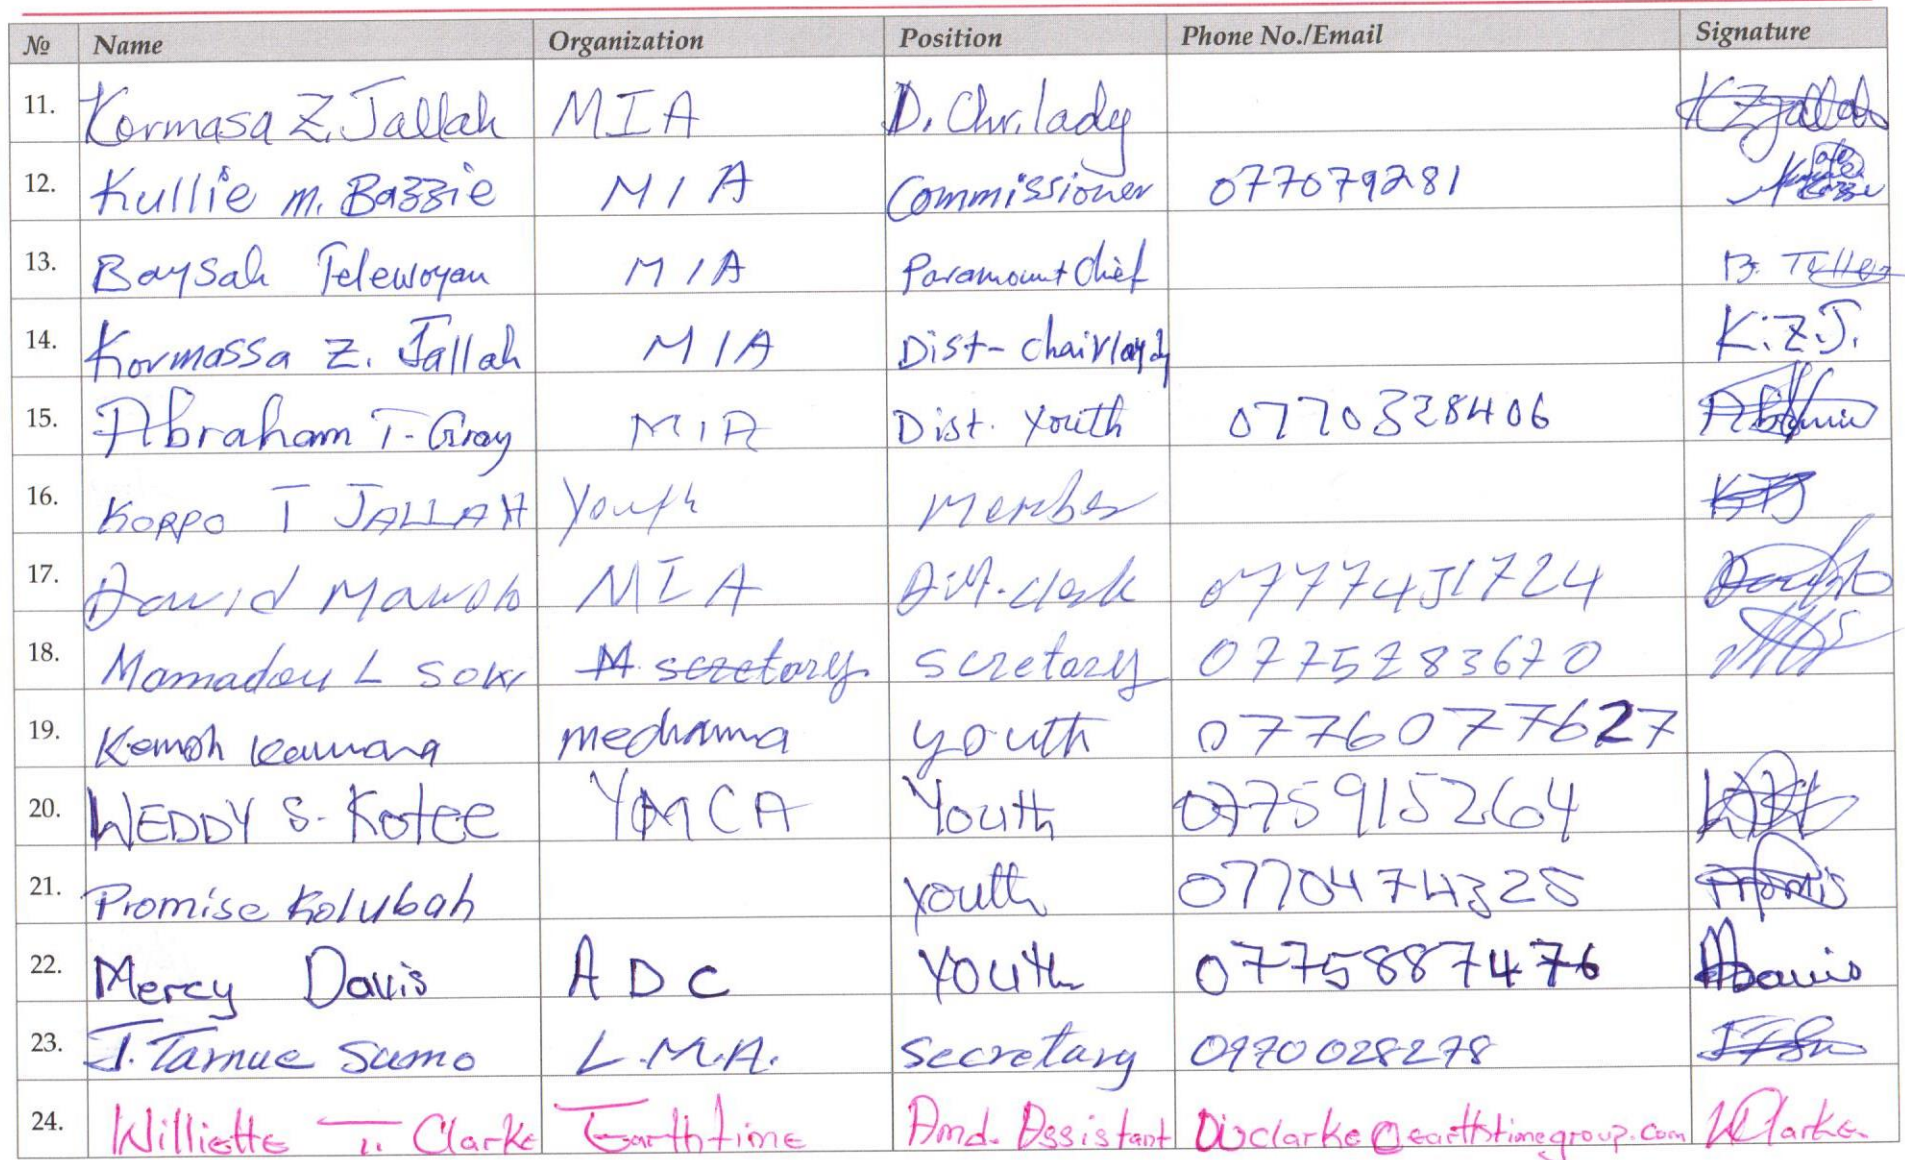 № Name Organization Position Phone No./Email Signature
11. Kormasa Z. Jallah MIA D. Chr. lady KZJallah
12. Kullie m. Bazzie MIA Commissioner 077079281
13. Baysah Telewoyan MIA Paramount Chief B. Telleo
14. Kormassa Z. Jallah MIA Dist- chairlayd K.Z.J.
15. Abraham T- Gray MIA Dist. Youth 0770328406
16. KORPO T JALLAH Youth Member KTJ
17. David Mawolo MIA clerk 0777451724
18. Mamadou L SOW M. scretary scretary 0775283670
19. Kemoh kamara youth 0776077627
20. WEDDY S- Kotee YMCA Youth 0775915264
21. Promise Kolubah youth 0770474325
22. Mercy Davis ADC YOUth 0775887476 MDavis
23. J. Tarnue Sumo L.M.A. Secretary 0970028278
24. Williette T. Clarke Earthtime Amd. Assistant WClarke